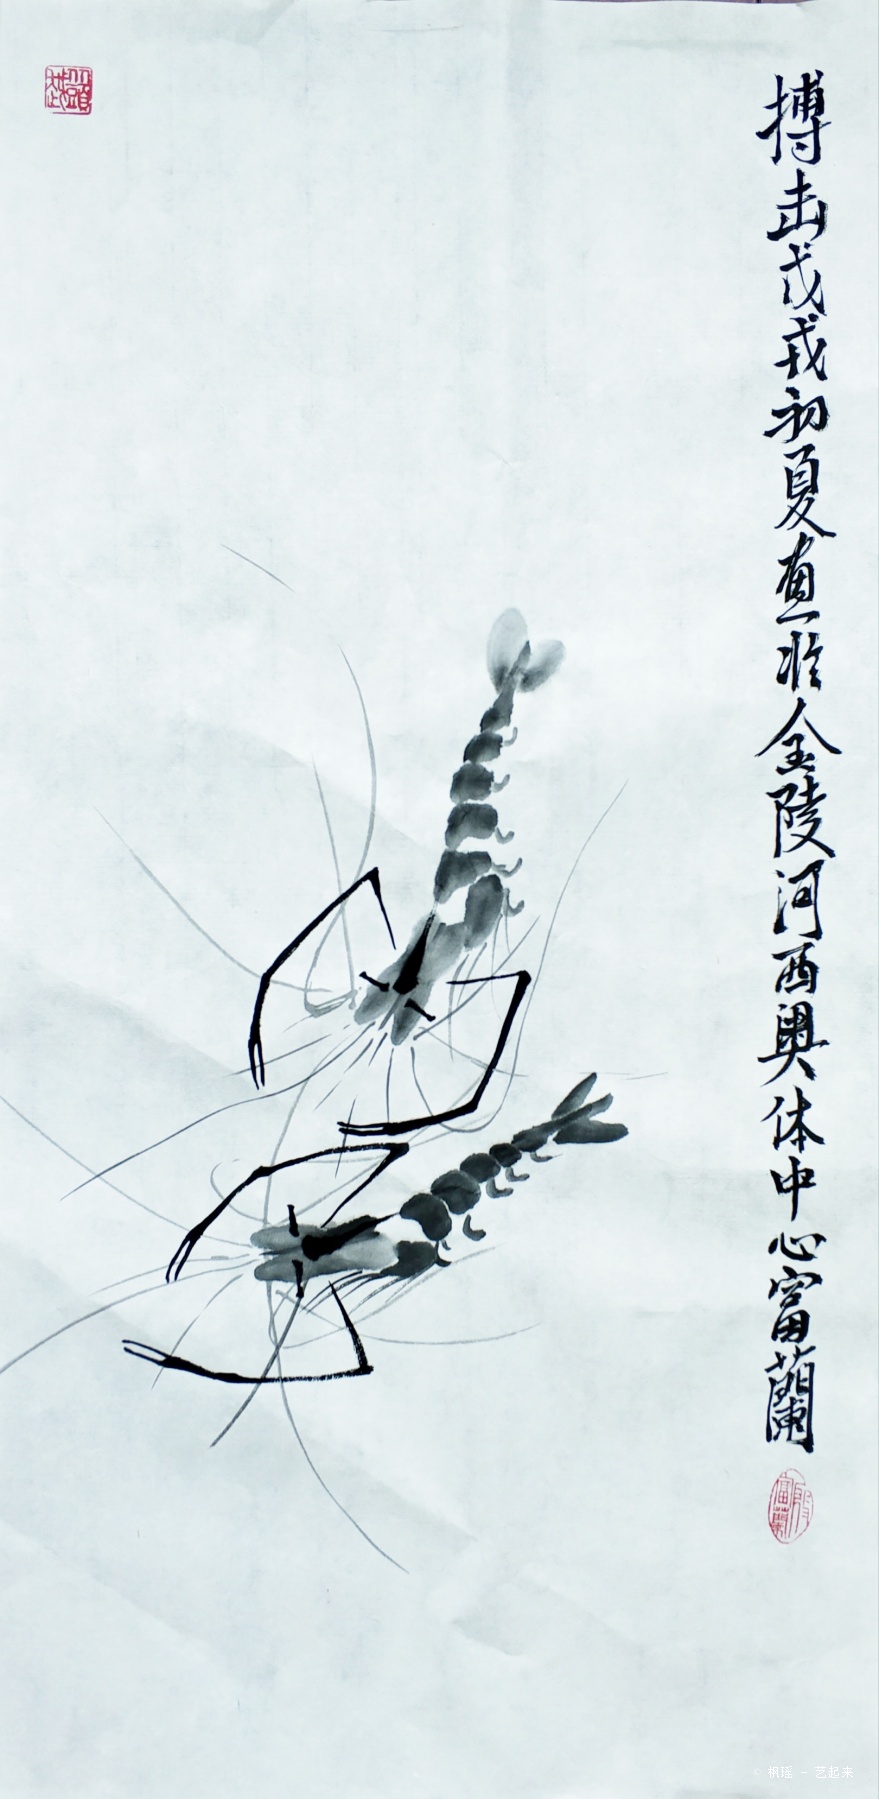 搏击戊戌初夏画於金陵河西奥体中心富蘭
殷富蘭
© 枫瑶 - 艺起来